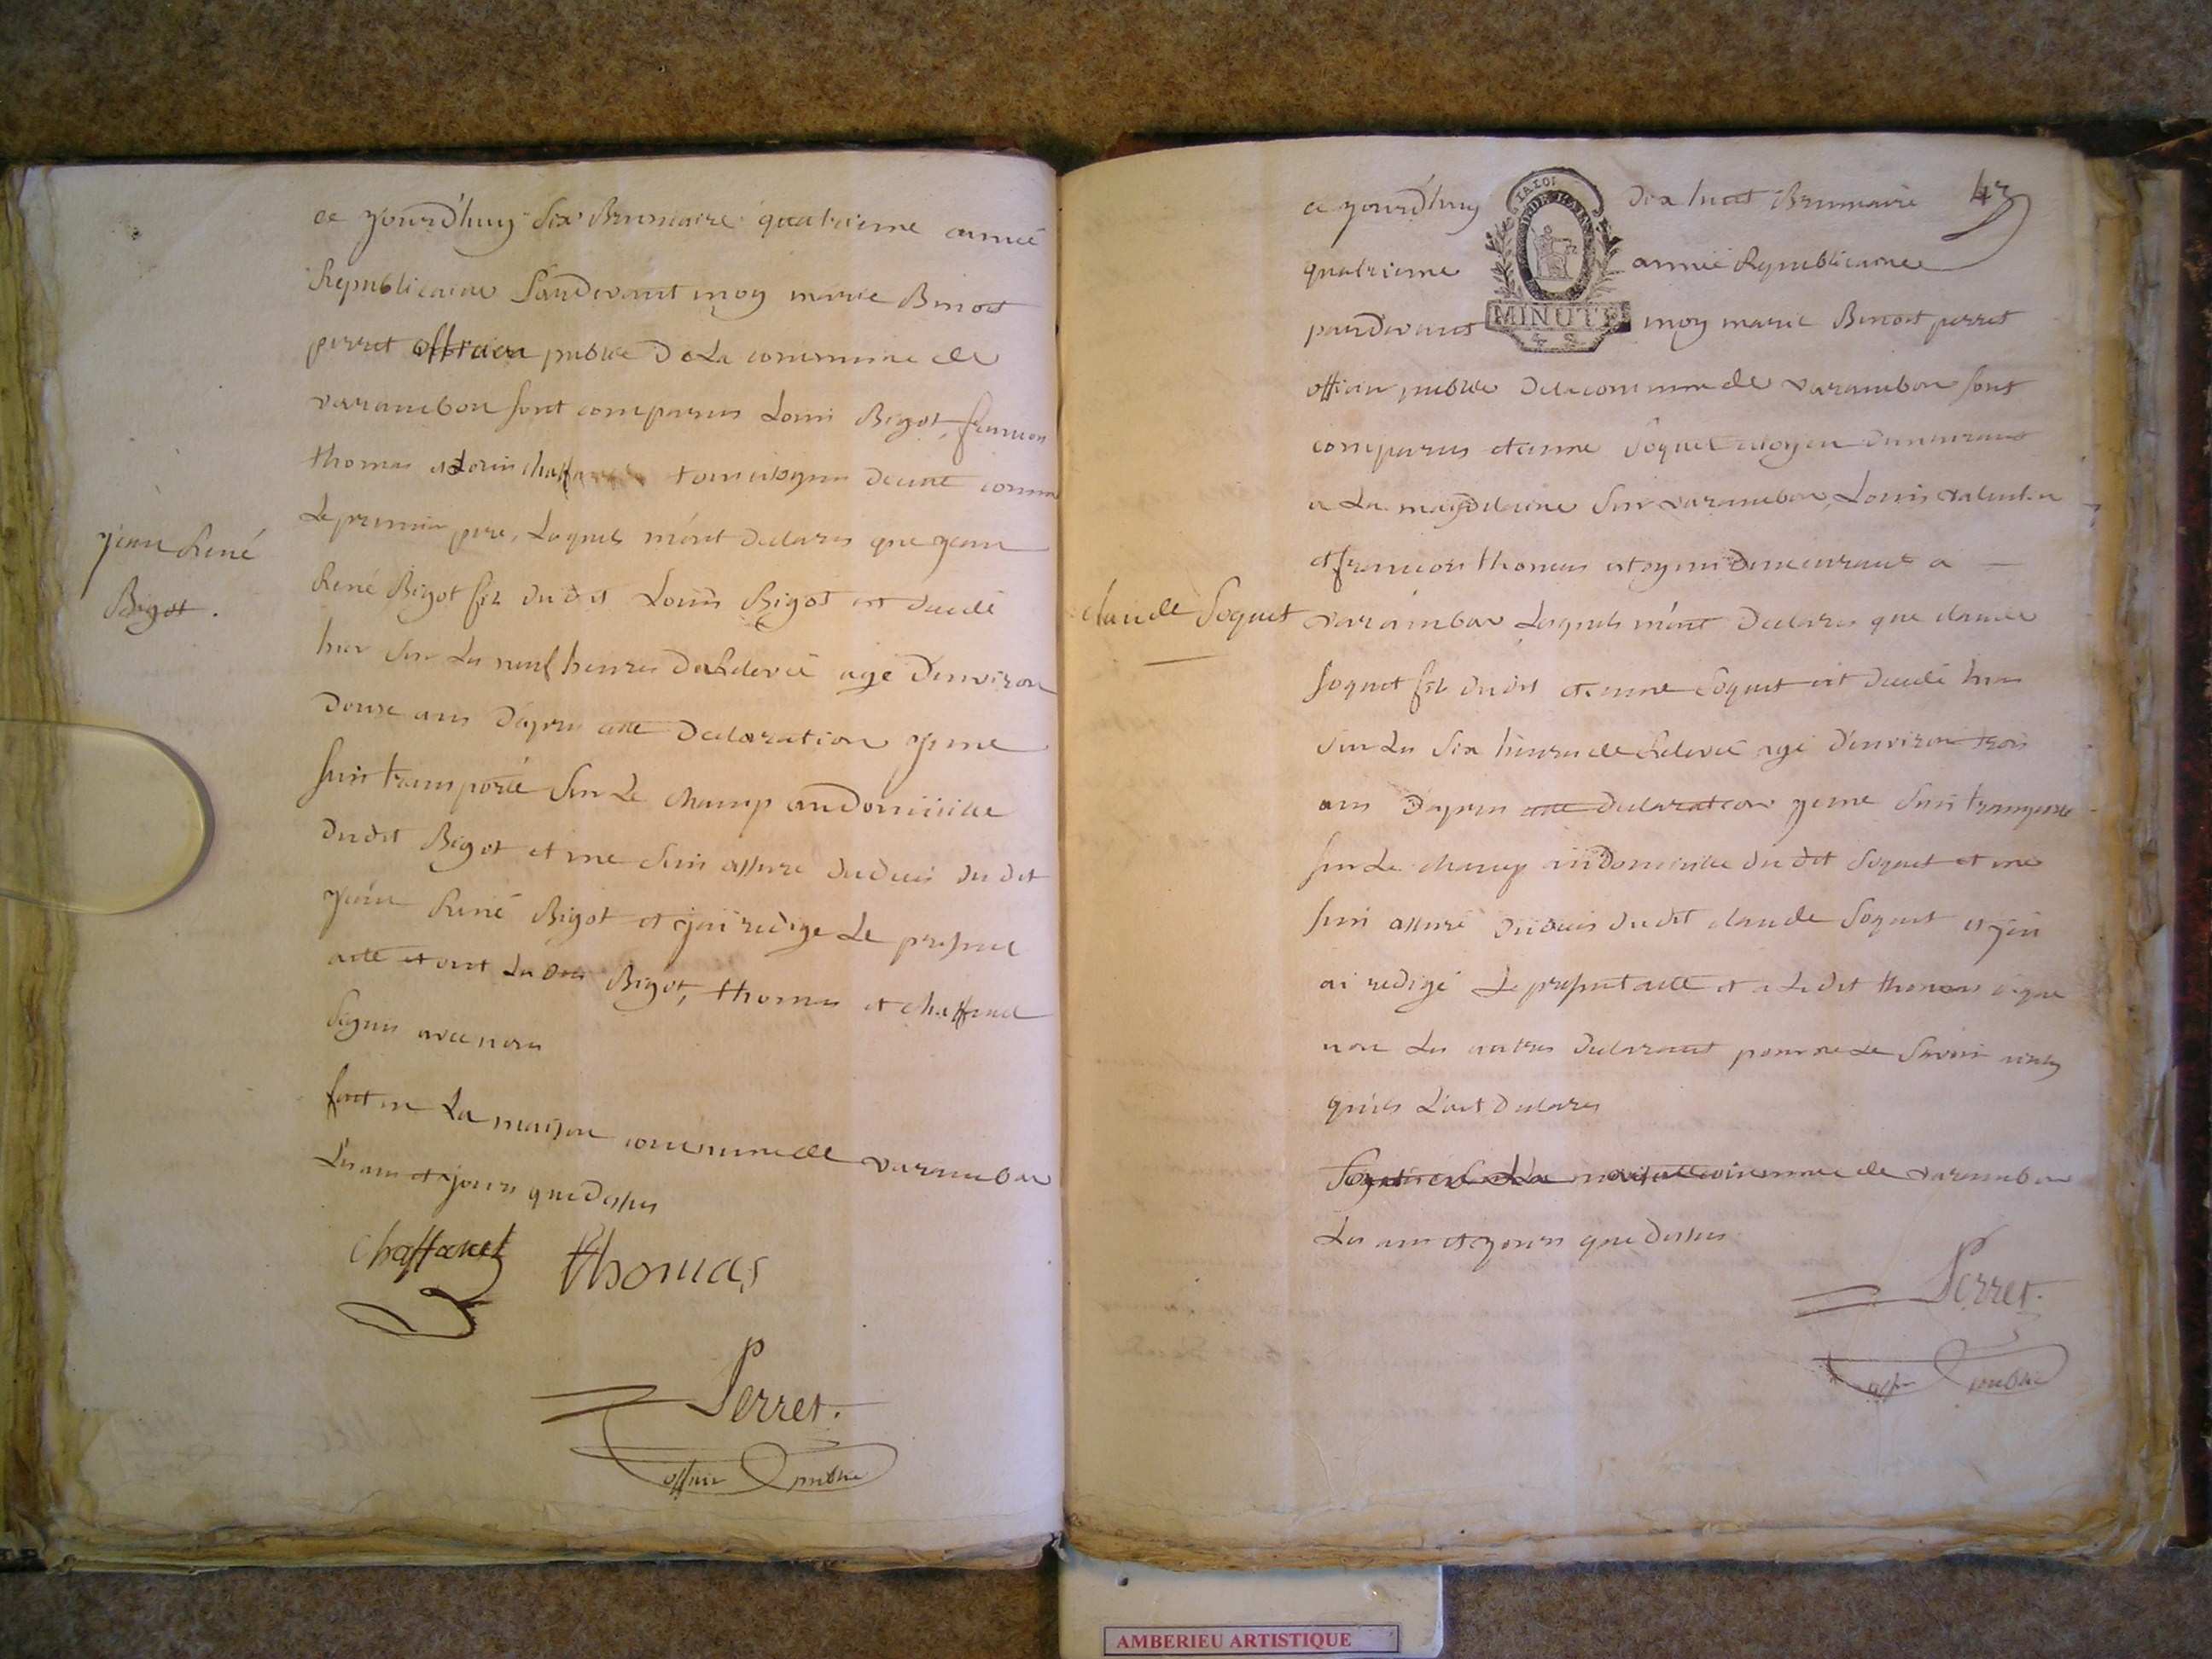 ce yourd'huy Six Brumaire quatrieme anneé
Republicaine Pardevant moy marie Benoit
perret officier public De La commune de
varambon sont comparus Louis Bigot, francois
thomas et Louis chaffanel tous citoyens De cette commune
Le premier pere, Lesquels m'ont Declarés que jean
jean René
Bigot.
René Bigot fils du dit Louis Bigot est decedé
hier Sur Les neuf heures De Relevée agé D'environ
Douze ans D'apres cette Declaration je me
suis transporté Sur Le champ au Domicille
Du dit Bigot et me Suis assuré Du deces du dit
jean René Bigot et j'ai redigé Le present
acte et ont Les dits Bigot, thomas et chaffanel
Signés avec nous
fait en La maison commune de varambon
Les an et jours que Dessus
chaffanel thomas
Perret.
officier public
43
ce yourd'huy Dix huit Brumaire
quatrieme anneé Republicaine
LA LOI
MINUTE
4 S
pardevant moy marie Benoit perret
officier public De la commune de varambon sont
comparus etienne Soquet citoyen Demeurant
a La magdelaine Sur varambon, Louis
et francois thomas citoyens Demeurant a
claude Soquet
varambon Lesquels m'ont Declarés que claude
Soquet fils du dit etienne Soquet est decedé hier
Sur Les Six heures de Relevée agé D'environ trois
ans D'apres cette Declaration je me Suis transporté
Sur Le champ au Domicille du dit Soquet et me
Suis assuré Du deces du dit claude Soquet et j'en
ai redigé Le present acte et a Le dit thomas signé
non Les autres Declarant pour ne Le Savoir
qu'ils L'ont Declarés
maison commune de varambon
Les an et jours que Dessus
Perret.
offier public
AMBERIEU ARTISTIQUE